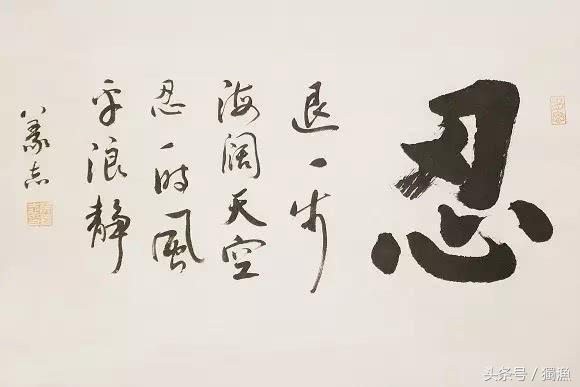 忍
退一步
海阔天空
忍一时風
平浪静
头条号 / 獨漁